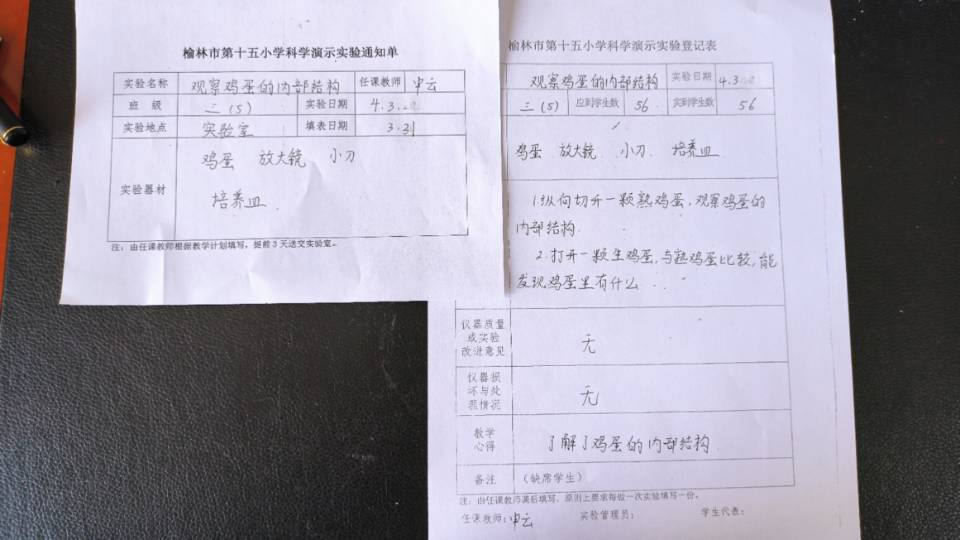 榆林市第十五小学科学演示实验通知单
实验名称 观察鸡蛋的内部结构 任课教师 申云
班 级 三(5) 实验日期 4.3
实验地点 实验室 填表日期 3.31
实验器材 鸡蛋 放大镜 小刀
培养皿
注:由任课教师根据教学计划填写,提前3天送交实验室。
榆林市第十五小学科学演示实验登记表
观察鸡蛋的内部结构 实验日期 4.3
三(5) 应到学生数 56 实到学生数 56
鸡蛋 放大镜 小刀 培养皿
1.纵向切开一颗熟鸡蛋,观察鸡蛋的
内部结构
2.打开一颗生鸡蛋,与熟鸡蛋比较,能
发现鸡蛋里有什么
仪器质量
或实验
改进意见
无
仪器损
坏与处
理情况
无
教学
心得
了解了鸡蛋的内部结构
备注 (缺席学生)
注:由任课教师课后填写,原则上要求每做一次实验填写一份。
任课教师:申云 实验管理员: 学生代表: